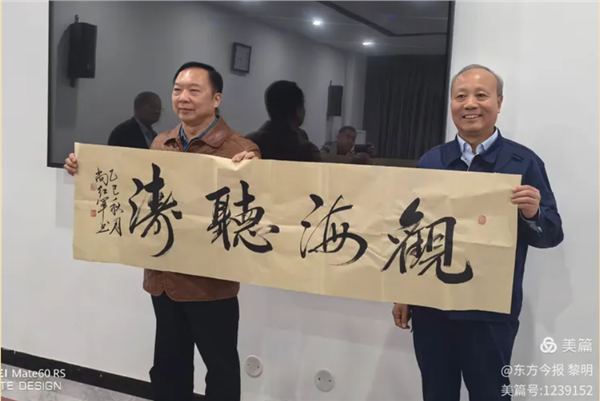 觀海聽濤
乙巳秋月
尚红军书
美篇
@东方今报 黎明
美篇号:1239152
EI Mate60 RS
TE DESIGN